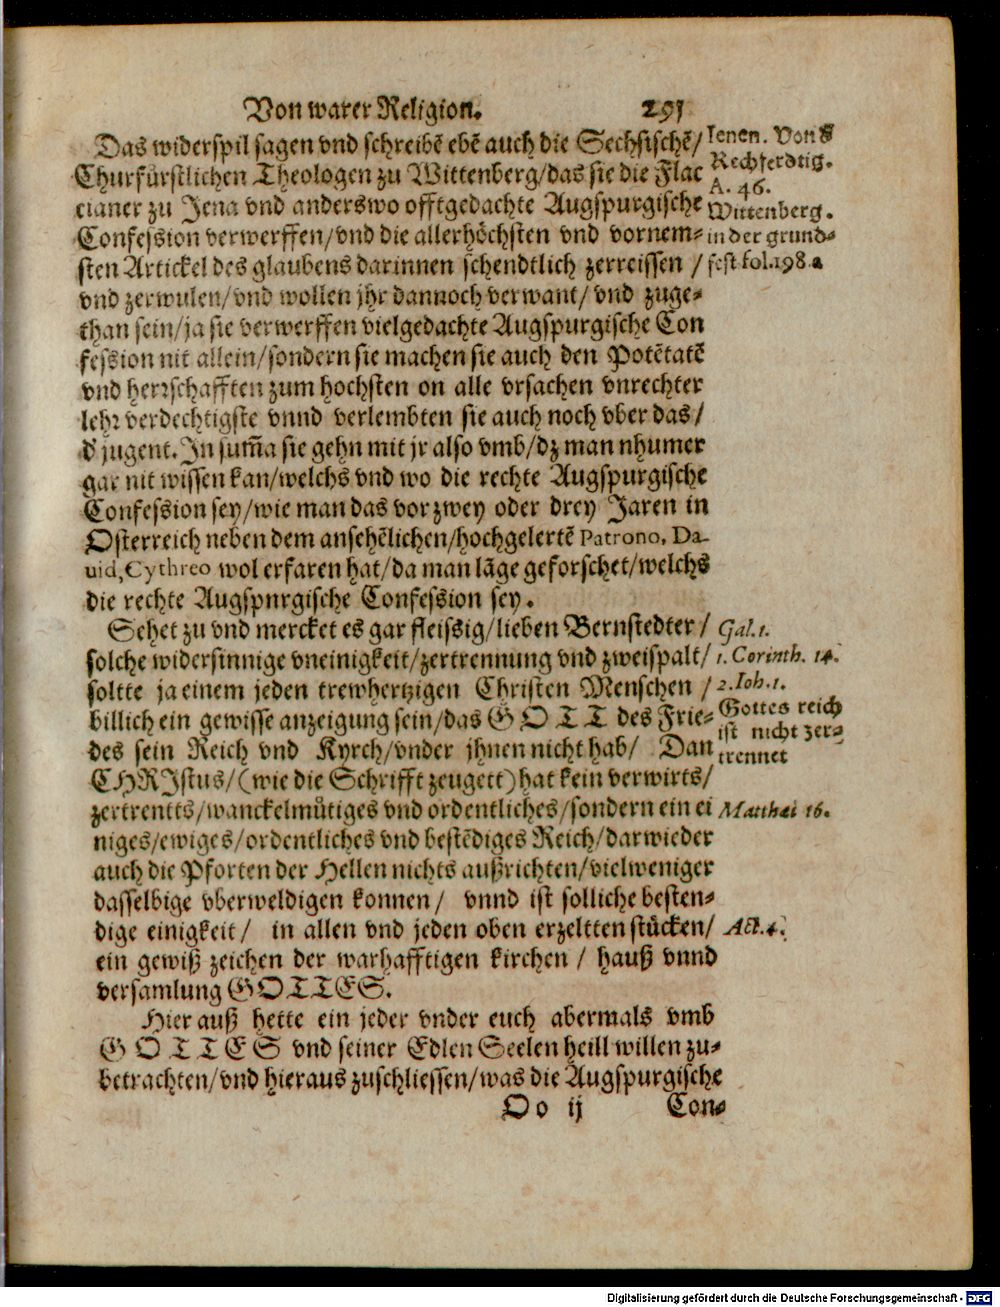 Von warer Religion. 291
Das widerspil sagen vnd schreibē ebē auch die Sechsischē/
Churfürstlichen Theologen zu Wittenberg/das sie die Flac
cianer zu Jena vnd anderswo offtgedachte Augspurgische
Confession verwerffen/vnd die allerhöchsten vnd vornem⸗
sten Artickel des glaubens darinnen schendtlich zerreissen /
vnd zerwulen/vnd wollen jhr dannoch verwant/ vnd zuge⸗
than sein/ja sie verwerffen vielgedachte Augspurgische Con
fession nit allein/sondern sie machen sie auch den Potētatē
vnd herrschafften zum hochsten on alle vrsachen vnrechter
lehr verdechtigste vnnd verlembten sie auch noch vber das/
d' jugent. In sum̄a sie gehn mit jr also vmb/dz man nhumer
gar nit wissen kan/welchs vnd wo die rechte Augspurgische
Confession sey/wie man das vor zwey oder drey Jaren in
Osterreich neben dem ansehēlichen/hochgelertē Patrono, Da-
uid, Cythreo wol erfaren hat/da man lāge geforschet/welchs
die rechte Augspnrgische Confession sey.
Sehet zu vnd mercket es gar fleissig/lieben Bernstedter /
solche widersinnige vneinigkeit/zertrennung vnd zweispalt/
soltte ja einem jeden trewhertzigen Christen Menschen /
billich ein gewisse anzeigung sein/das GOTT des Frie⸗
des sein Reich vnd Kyrch/vnder jhnen nicht hab/ Dan
CHRIstus/(wie die Schrifft zeugett) hat kein verwirts/
zertrentts/wanckelmütiges vnd ordentliches/sondern ein ei
niges/ewiges/ordentliches vnd bestēdiges Reich/darwieder
auch die Pforten der Hellen nichts außrichten/vielweniger
dasselbige vberweldigen konnen/ vnnd ist solliche besten⸗
dige einigkeit/ in allen vnd jeden oben erzeltten stücken/
ein gewiß zeichen der warhafftigen kirchen / hauß vnnd
versamlung GOTTES.
Hier auß hette ein jeder vnder euch abermals vmb
GOTTES vnd seiner Edlen Seelen heill willen zu⸗
betrachten/vnd hieraus zuschliessen/was die Augspurgische
Oo ij Con⸗
Ienen. Von d'
Rechferdtig.
A. 46.
Wittenberg.
in der grund⸗
fest fol.198.a
Gal. 1.
1. Corinth. 14.
2. Ioh. 1.
Gottes reich
ist nicht zer⸗
trennet
Matthæi 16.
Act. 4.
Digitalisierung gefördert durch die Deutsche Forschungsgemeinschaft - DFG